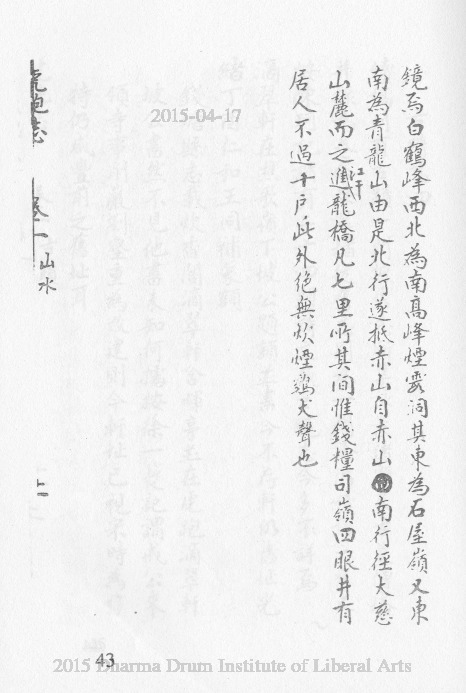 鏡焉白鶴峰西北為南高峰煙霞洞其東為石屋嶺又東
南為青龍山由是北行遂抵赤山自赤山南行徑大慈
山麓而之江干進龍橋凡七里所其間惟錢糧司嶺四眼井有
居人不過十戶此外絕無炊煙鷄犬聲也
虎跑志 卷一 山水
十一
2015-04-17
43
2015 Dharma Drum Institute of Liberal Arts